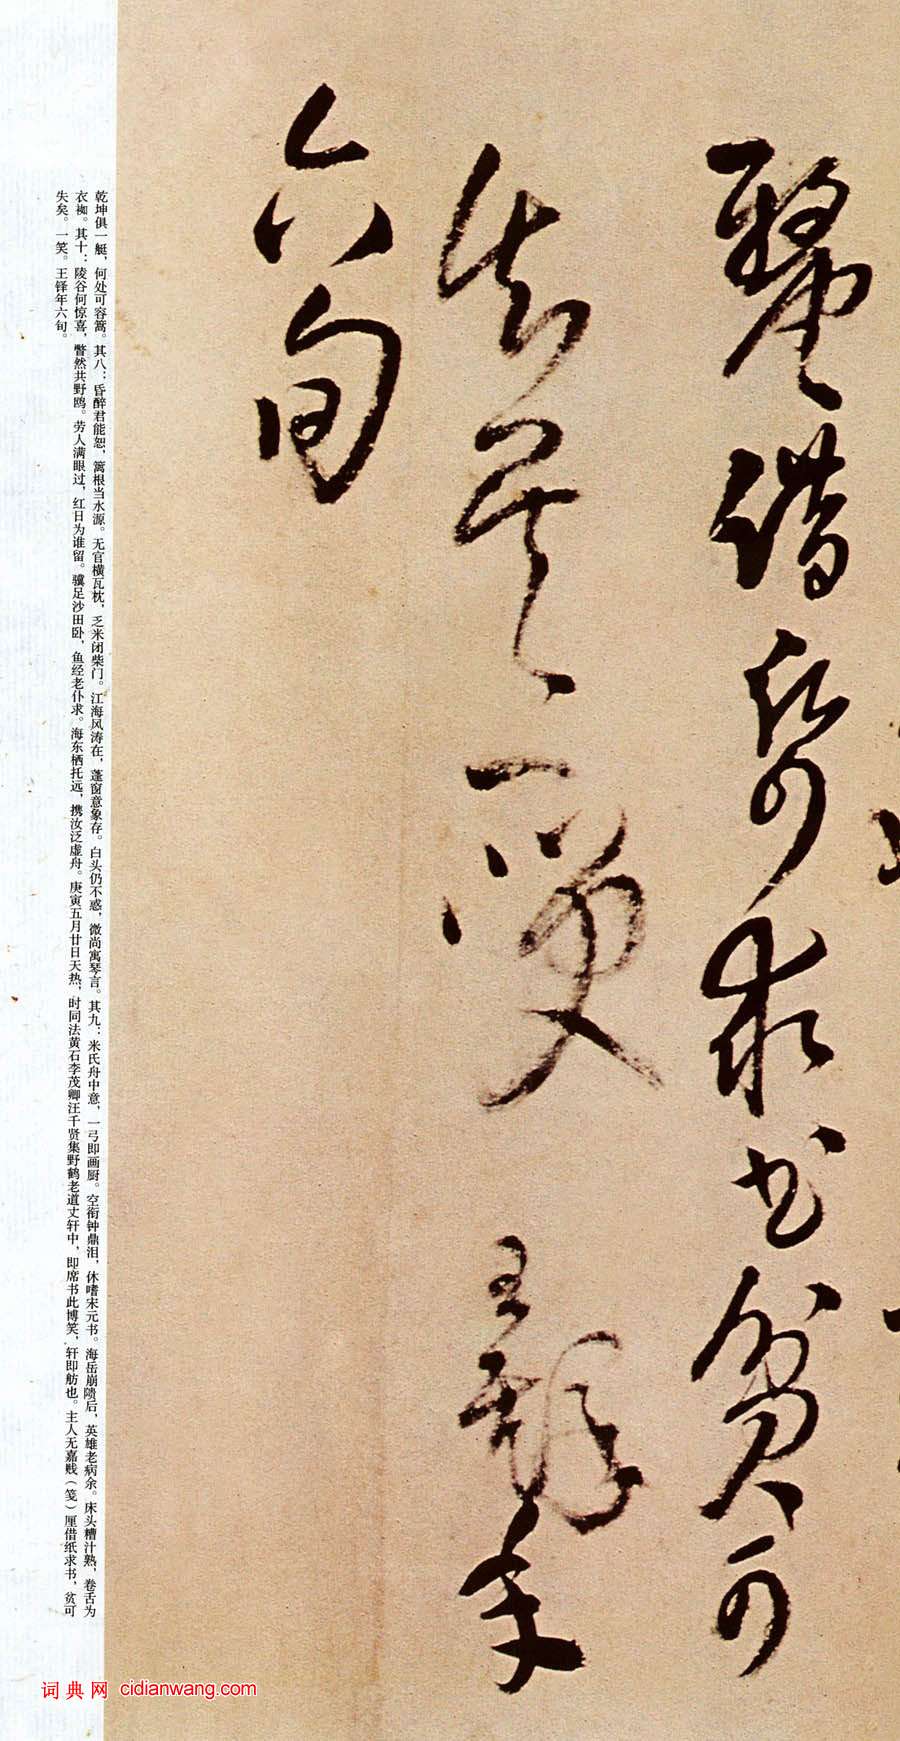 釐借紙求書貧可
失矣一笑王鐸年
六旬
乾坤俱一艇，何处可容篙。其八：昏醉君能恕，篱根当水源。无官横瓦枕，乏米闭柴门。江海风涛在，蓬窗意象存。白头仍不惑，微尚寓琴言。其九：米氏舟中意，一弓即画厨。空衔钟鼎泪，休嗜宋元书。海岳崩隤后，英雄老病余。床头糟汁熟，卷舌为
衣袽。其十：陵谷何惊喜，瞥然共野鸥。劳人满眼过，红日为谁留。骥足沙田卧，鱼经老仆求。海东栖托远，携汝泛虚舟。庚寅五月廿日天热，时同法黄石李茂卿汪千贤集野鹤老道丈轩中，即席书此博笑，轩即舫也。主人无嘉贱（笺）厘借纸求书，贫可
失矣。一笑。王铎年六旬。
词典网 cidianwang.com